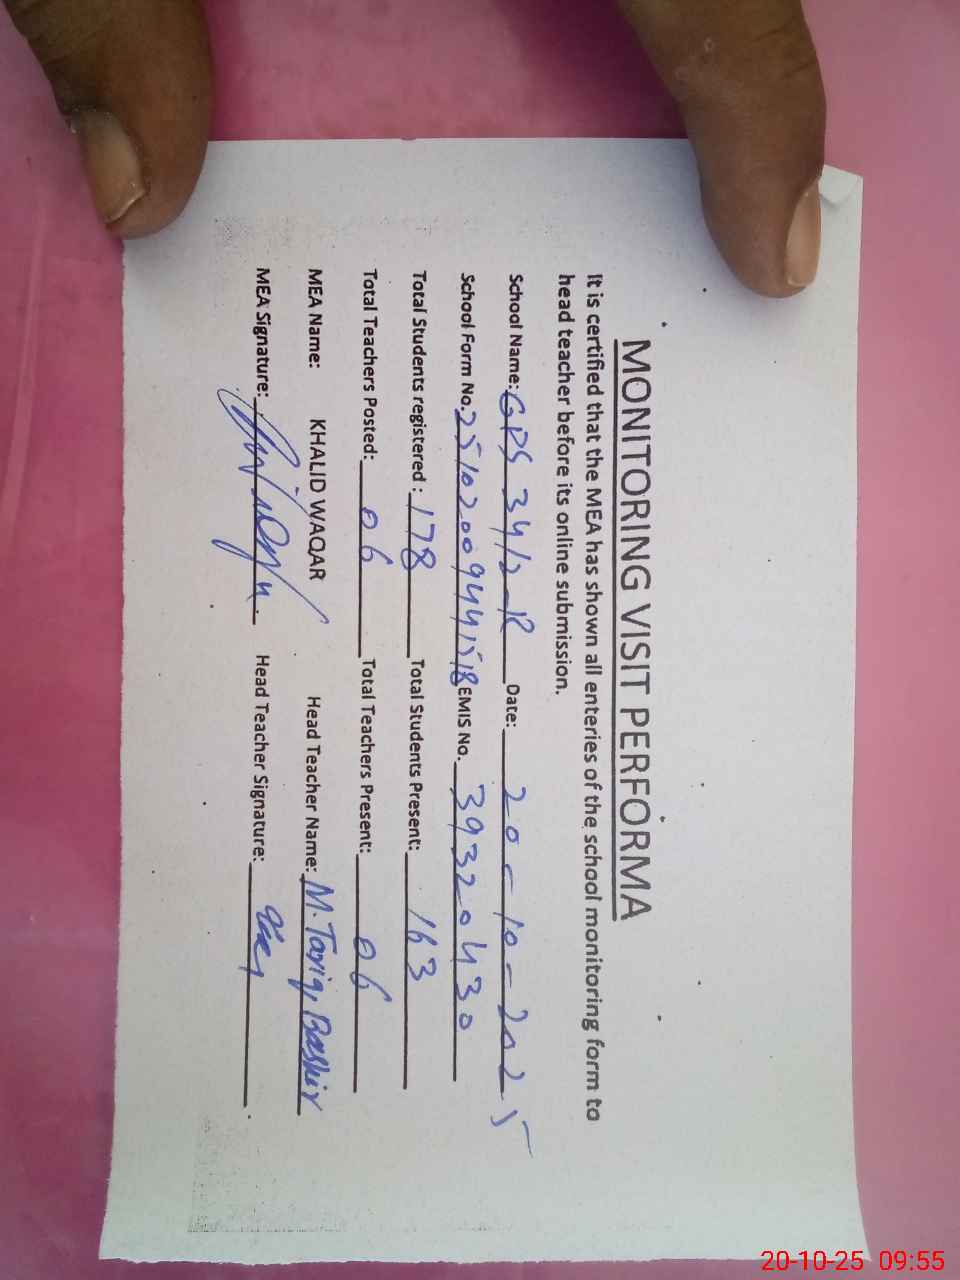 MONITORING VISIT PERFORMA
It is certified that the MEA has shown all enteries of the school monitoring form to
head teacher before its online submission.
School Name: GPS 34/2-R Date: 20-10-2025
School Form No. 25102009441518 EMIS No. 39320430
Total Students registered : 178 Total Students Present: 163
Total Teachers Posted: 06 Total Teachers Present: 06
MEA Name: KHALID WAQAR Head Teacher Name: M. Tariq Bashir
MEA Signature: Head Teacher Signature:
20-10-25 09:55